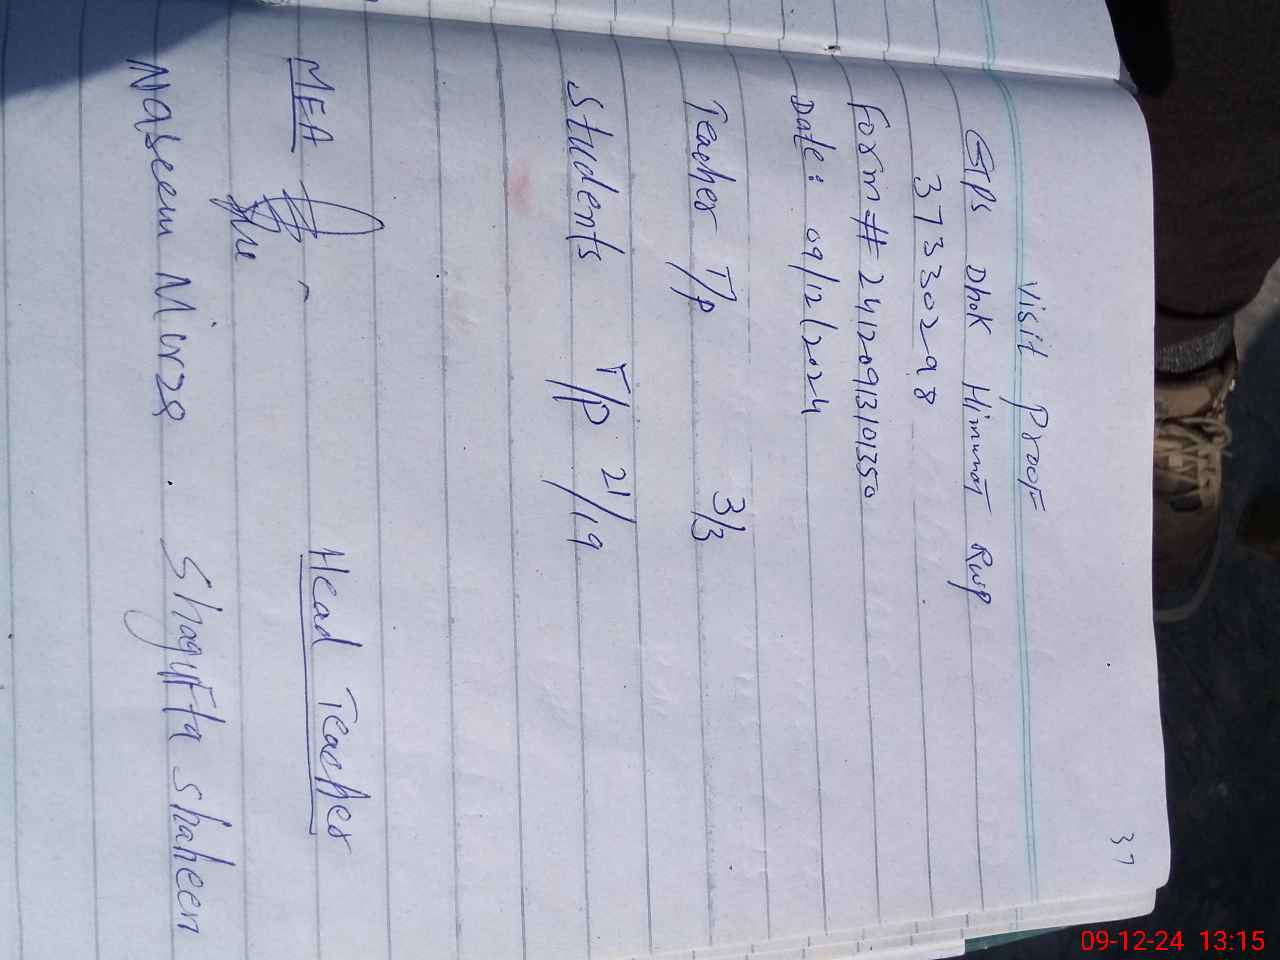 37
Visit Proof
GPS Dhok Himmat Rwp
37330298
Form # 24120913101350
Date: 09/12/2024
Teacher T/P 3/3
Students T/P 21/19
MEA Head Teacher
Naseem Mirza. Shagufta Shaheen
09-12-24 13:15